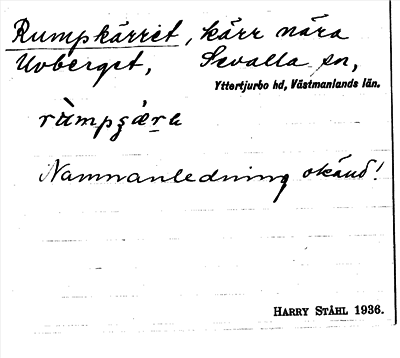 Rumpkärret, kärr nära
Uvberget, Sevalla sn,
Yttertjurbo hd, Västmanlands län.
Namnanledning okänd!
HARRY STÅHL 1936.